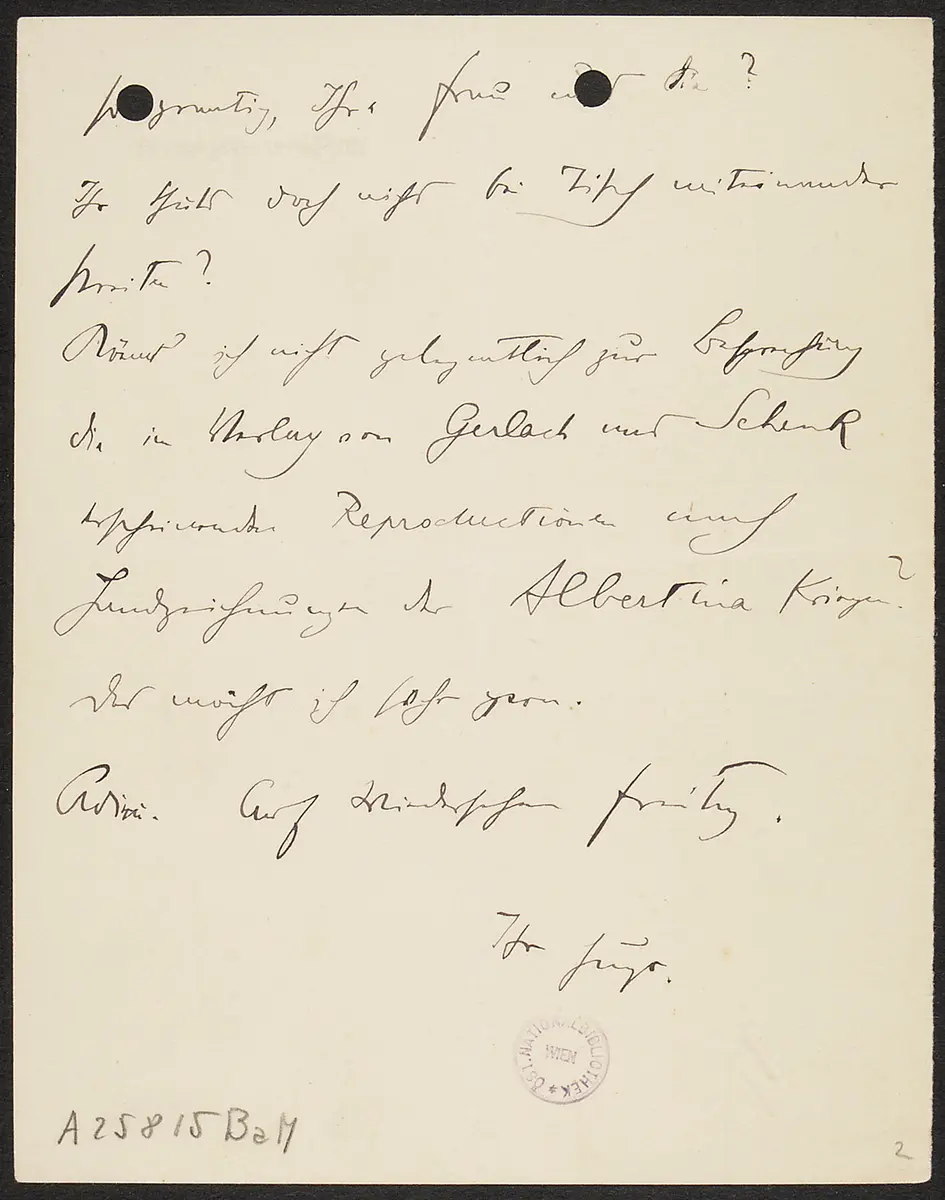 so grantig, Ihre Frau und Sie?
Ihr thuts doch nicht bei Tisch miteinander
streiten?
Könnt ich nicht gelegentlich zur Besprechung
die im Verlag von Gerlach und Schenk
erscheinenden Reproductionen nach
Handzeichnungen der Albertina kriegen?
Das möcht ich sehr gern.
Adieu. Auf Wiedersehen Freitag.
Ihr Hugo.
ÖST. NATIONALBIBLIOTHEK * WIEN
A 25815 BaM
2